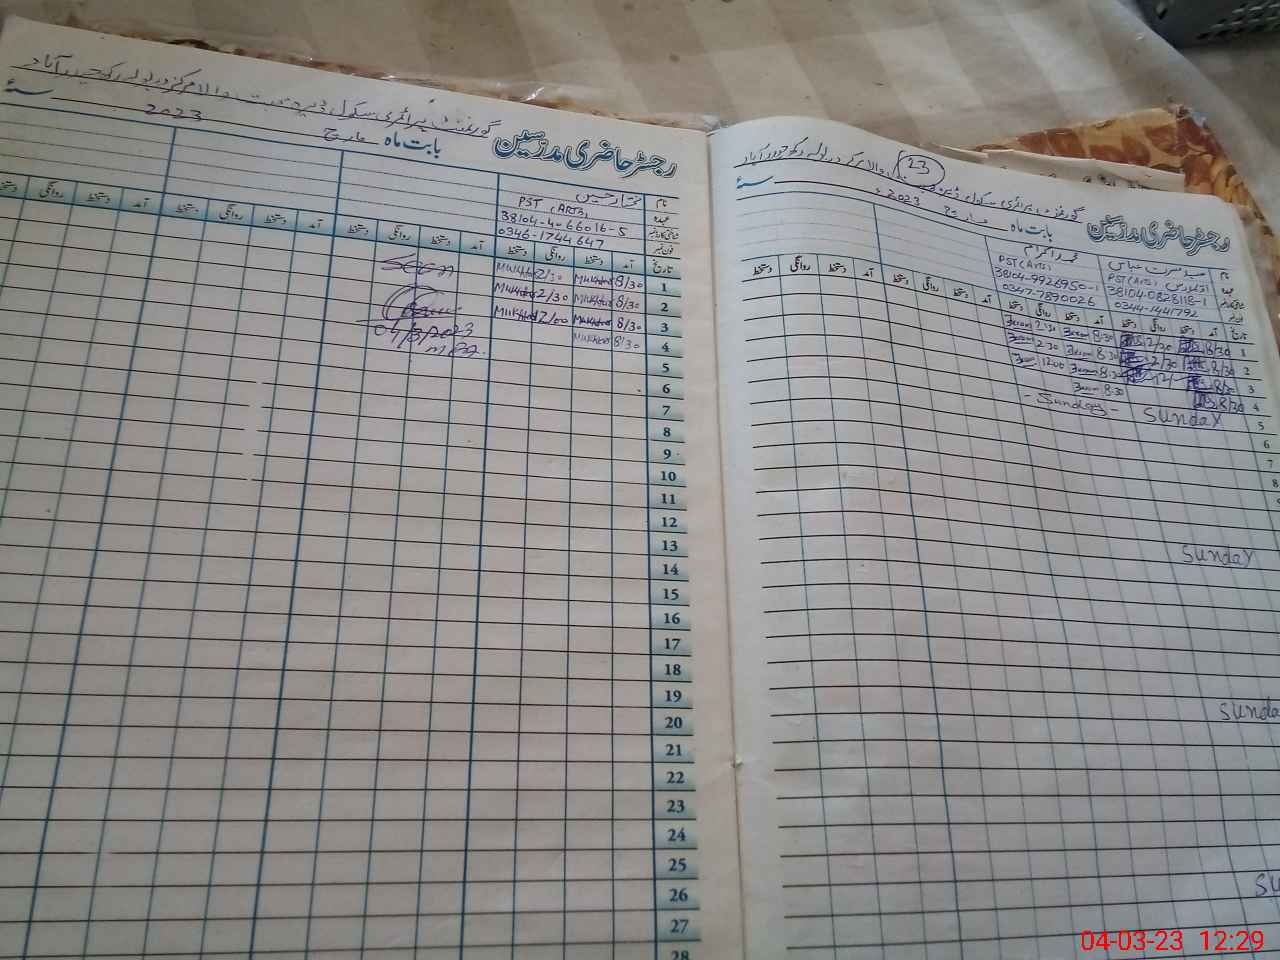 رجسٹر حاضری مدرسین
گورنمنٹ پرائمری سکول
بابت ماہ مارچ 2023 سنہ
نام مختار حسین
عہدہ PST (ARTS)
شناختی کارڈ نمبر 38104-4066016-5
فون نمبر 0346-1744647
تاریخ آمد دستخط روانگی دستخط آمد دستخط روانگی دستخط آمد دستخط روانگی دستخط
1 8/30 Mukhtar 2/30 Mukhtar
2 8/30 Mukhtar 2/30 Mukhtar
3 8/30 Mukhtar 12/00 Mukhtar
4 8/30 Mukhtar
Seen
04/3/2023
5
6
7
8
9
10
11
12
13
14
15
16
17
18
19
20
21
22
23
24
25
26
27
28
23
رجسٹر حاضری مدرسین
گورنمنٹ پرائمری سکول
بابت ماہ مارچ 2023 سنہ
نام سید مسرت عباس محمد اکرام
PST (Arts) PST (Arts)
38104-0828118-1 38104-9926950-1
0344-1441792 0347-7890026
تاریخ آمد دستخط روانگی دستخط آمد دستخط روانگی دستخط آمد دستخط روانگی دستخط
1 8/30 2/30 8:30 2:30
2 8/30 2/30 8:30 2:30
3 8/30 12/ 8:30 12:00
4 8/30 8:30
5 Sunday - Sunday -
6
7
8
Sunday
Sunda
Su
04-03-23 12:29